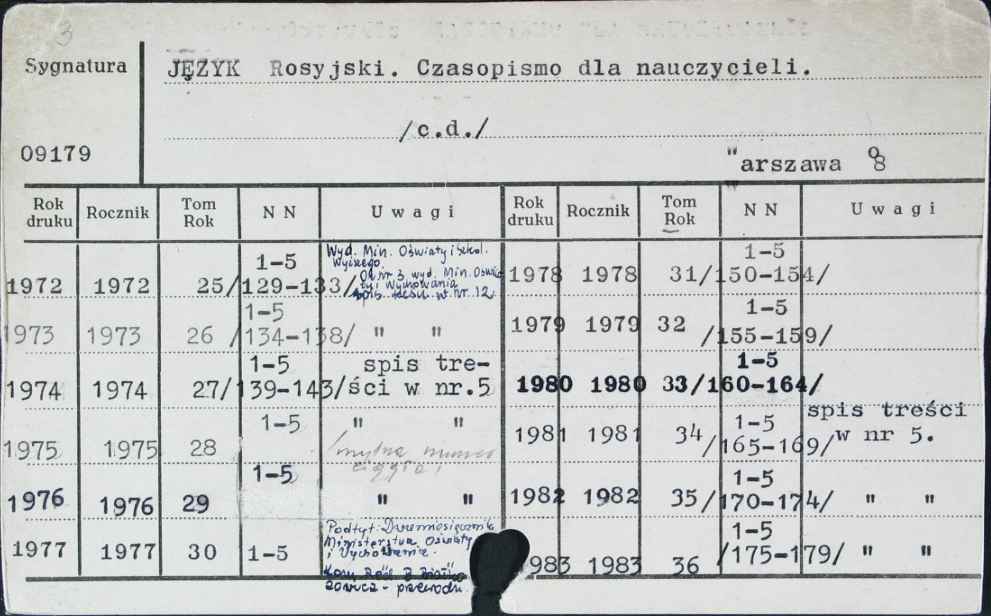 3
Sygnatura JĘZYK Rosyjski. Czasopismo dla nauczycieli.
/c.d./
09179
"arszawa 8
Rok druku Rocznik Tom Rok N N Uwagi Rok druku Rocznik Tom Rok N N Uwagi
1972 1972 25 1-5 /129-133/ Wyd. Min. Oświaty i Szkol. Wyższego.
Od nr 3 wyd. Min. Oświa
ty i Wychowania
spis treści w nr. 12
1973 1973 26 1-5 /134-138/ " "
1974 1974 27 1-5 /139-143/ spis tre-
ści w nr.5
1975 1975 28 1-5 " "
/mylna numer
ciągła/
1976 1976 29 1-5 " "
1977 1977 30 1-5 Podtyt: Dwumiesięcznik
Ministerstwa Oświaty
i Wychowania.
1978 1978 31 1-5 /150-154/
1979 1979 32 1-5 /155-159/
1980 1980 33 1-5 /160-164/
1981 1981 34 1-5 /165-169/ spis treści
w nr 5.
1982 1982 35 1-5 /170-174/ " "
983 1983 36 1-5 /175-179/ " "